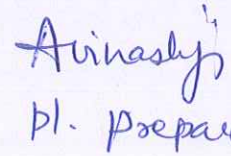 Avinashji
pl. prepar